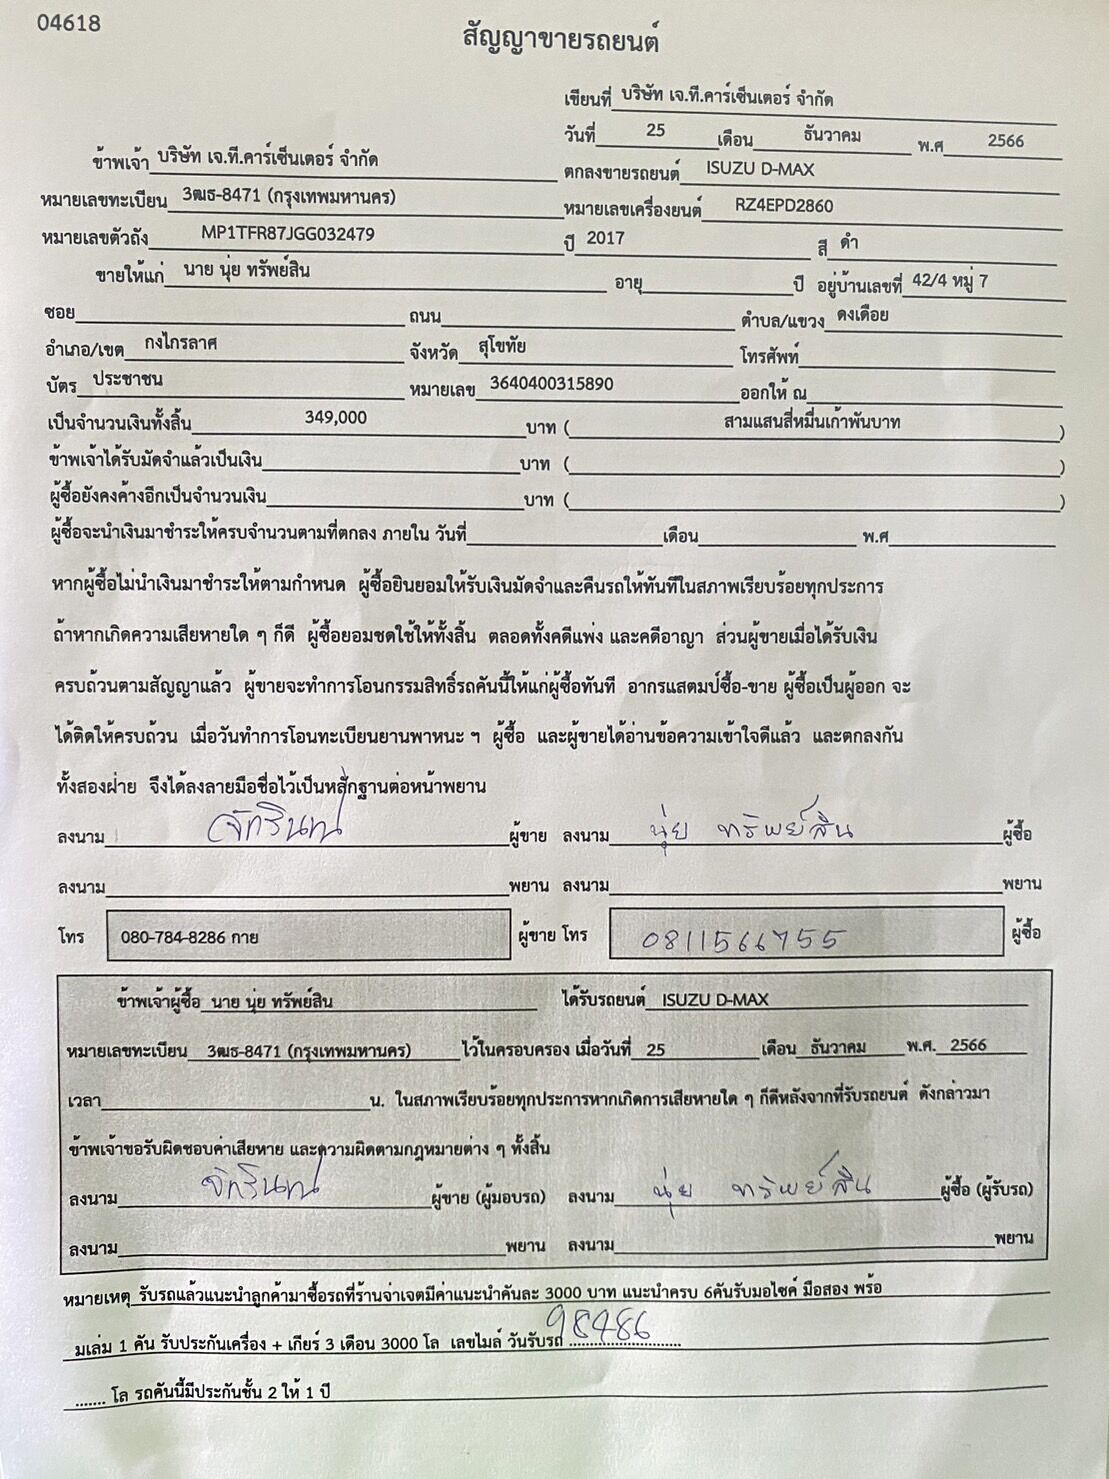 04618
สัญญาขายรถยนต์
เขียนที่ บริษัท เจ.ที.คาร์เซ็นเตอร์ จำกัด
วันที่ 25 เดือน ธันวาคม พ.ศ 2566
ข้าพเจ้า บริษัท เจ.ที.คาร์เซ็นเตอร์ จำกัด ตกลงขายรถยนต์ ISUZU D-MAX
หมายเลขทะเบียน 3ฒธ-8471 (กรุงเทพมหานคร) หมายเลขเครื่องยนต์ RZ4EPD2860
หมายเลขตัวถัง MP1TFR87JGG032479 ปี 2017 สี ดำ
ขายให้แก่ นาย นุ่ย ทรัพย์สิน อายุ ปี อยู่บ้านเลขที่ 42/4 หมู่ 7
ซอย ถนน ตำบล/แขวง ดงเดือย
อำเภอ/เขต กงไกรลาศ จังหวัด สุโขทัย โทรศัพท์
บัตร ประชาชน หมายเลข 3640400315890 ออกให้ ณ
เป็นจำนวนเงินทั้งสิ้น 349,000 บาท ( สามแสนสี่หมื่นเก้าพันบาท )
ข้าพเจ้าได้รับมัดจำแล้วเป็นเงิน บาท ( )
ผู้ซื้อยังคงค้างอีกเป็นจำนวนเงิน บาท ( )
ผู้ซื้อจะนำเงินมาชำระให้ครบจำนวนตามที่ตกลง ภายใน วันที่ เดือน พ.ศ
หากผู้ซื้อไม่นำเงินมาชำระให้ตามกำหนด ผู้ซื้อยินยอมให้รับเงินมัดจำและคืนรถให้ทันทีในสภาพเรียบร้อยทุกประการ
ถ้าหากเกิดความเสียหายใด ๆ ก็ดี ผู้ซื้อยอมชดใช้ให้ทั้งสิ้น ตลอดทั้งคดีแพ่ง และคดีอาญา ส่วนผู้ขายเมื่อได้รับเงิน
ครบถ้วนตามสัญญาแล้ว ผู้ขายจะทำการโอนกรรมสิทธิ์รถคันนี้ให้แก่ผู้ซื้อทันที อากรแสตมป์ซื้อ-ขาย ผู้ซื้อเป็นผู้ออก จะ
ได้ติดให้ครบถ้วน เมื่อวันทำการโอนทะเบียนยานพาหนะ ฯ ผู้ซื้อ และผู้ขายได้อ่านข้อความเข้าใจดีแล้ว และตกลงกัน
ทั้งสองฝ่าย จึงได้ลงลายมือชื่อไว้เป็นหลักฐานต่อหน้าพยาน
ลงนาม ผู้ขาย ลงนาม นุ่ย ทรัพย์สิน ผู้ซื้อ
ลงนาม พยาน ลงนาม พยาน
โทร 080-784-8286 กาย ผู้ขาย โทร 0811566755 ผู้ซื้อ
ข้าพเจ้าผู้ซื้อ นาย นุ่ย ทรัพย์สิน ได้รับรถยนต์ ISUZU D-MAX
หมายเลขทะเบียน 3ฒธ-8471 (กรุงเทพมหานคร) ไว้ในครอบครอง เมื่อวันที่ 25 เดือน ธันวาคม พ.ศ. 2566
เวลา น. ในสภาพเรียบร้อยทุกประการหากเกิดการเสียหายใด ๆ ก็ดีหลังจากที่รับรถยนต์ ดังกล่าวมา
ข้าพเจ้าขอรับผิดชอบค่าเสียหาย และความผิดตามกฎหมายต่าง ๆ ทั้งสิ้น
ลงนาม ผู้ขาย (ผู้มอบรถ) ลงนาม นุ่ย ทรัพย์สิน ผู้ซื้อ (ผู้รับรถ)
ลงนาม พยาน ลงนาม พยาน
หมายเหตุ รับรถแล้วแนะนำลูกค้ามาซื้อรถที่ร้านจ่าเจตมีค่าแนะนำคันละ 3000 บาท แนะนำครบ 6คันรับมอไซค์ มือสอง พร้อ
มเล่ม 1 คัน รับประกันเครื่อง + เกียร์ 3 เดือน 3000 โล เลขไมล์ วันรับรถ 98486
....... โล รถคันนี้มีประกันชั้น 2 ให้ 1 ปี